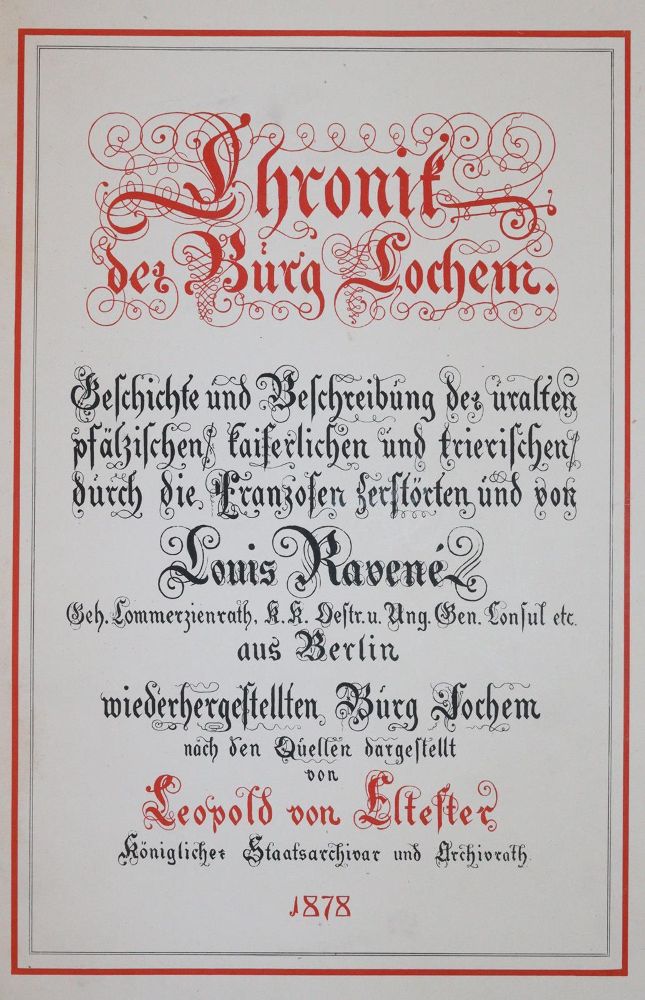 Chronik
der Burg Cochem.
Geschichte und Beschreibung der uralten
pfälzischen, kaiserlichen und trierischen,
durch die Franzosen zerstörten und von
Louis Ravené
Geh. Commerzienrath, K. K. Oestr. u. Ung. Gen. Consul etc.
aus Berlin
wiederhergestellten Burg Cochem
nach den Quellen dargestellt
von
Leopold von Eltester
Königlicher Staatsarchivar und Archivrath.
1878